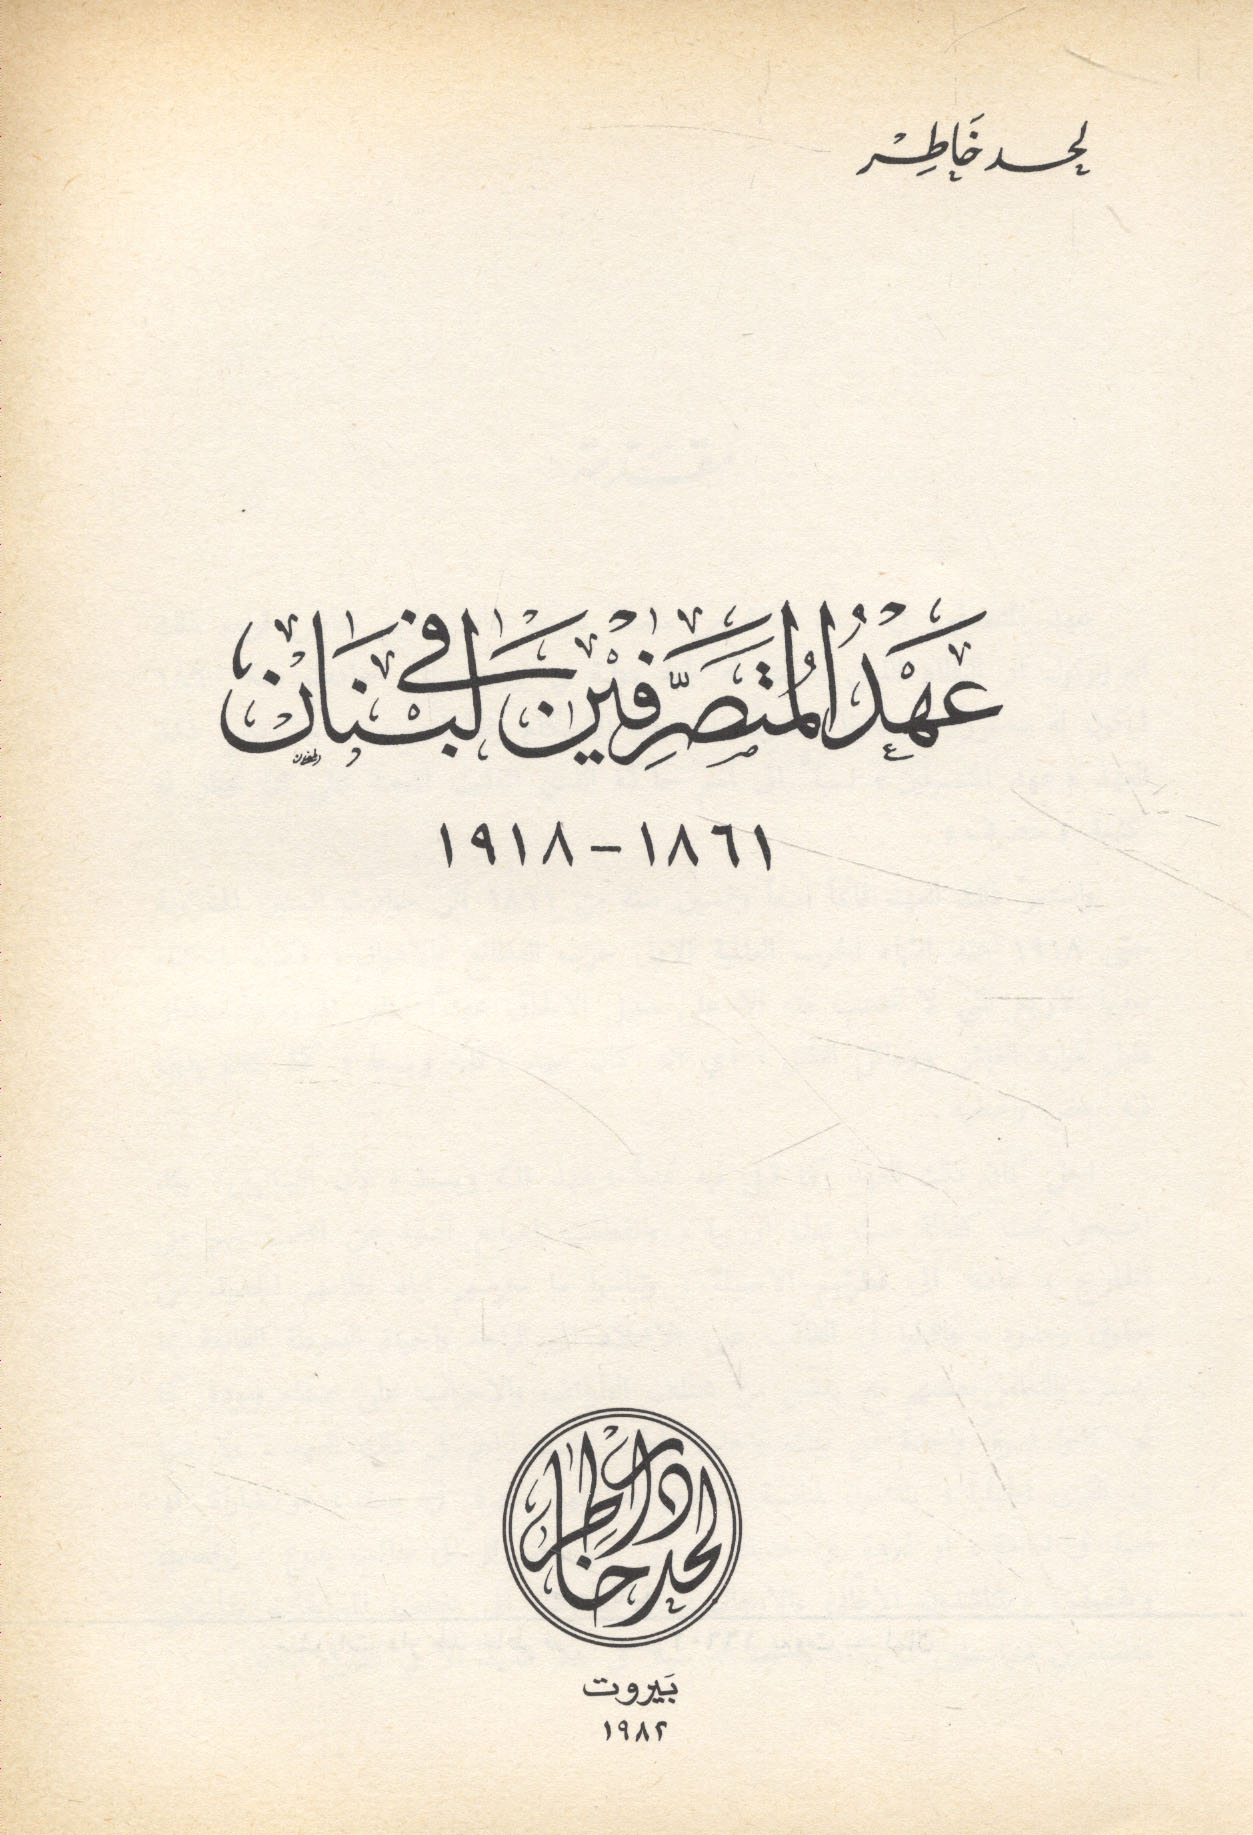 لحد خَاطِر
عَهْدُ المُتَصَرِّفِيْن في لبْنَانْ
١٨٦١ - ١٩١٨
دار لحد خاطر
بَيروت
١٩٨٢